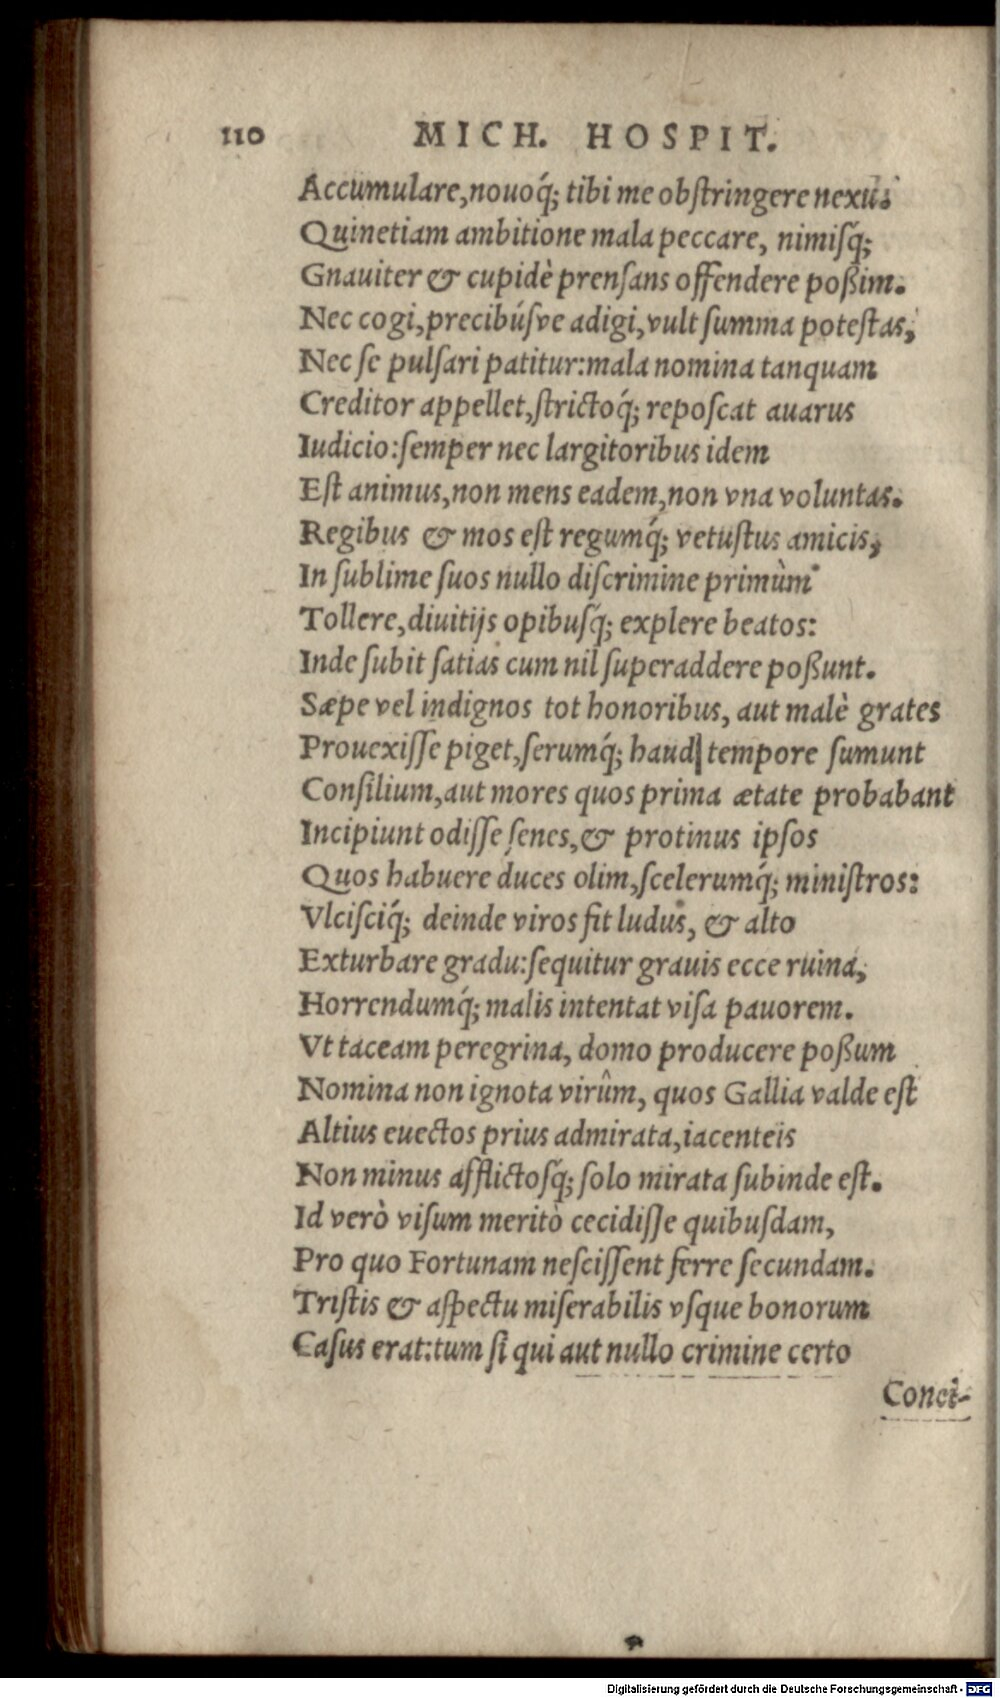 110 MICH. HOSPIT.
Accumulare,nouoq́; tibi me obſtringere nexu:
Quinetiam ambitione mala peccare, nimiſq́;
Gnauiter & cupidè prenſans offendere poßim.
Nec cogi,precibúſve adigi,vult ſumma poteſtas,
Nec ſe pulſari patitur:mala nomina tanquam
Creditor appellet,ſtrictoq́; repoſcat auarus
Iudicio:ſemper nec largitoribus idem
Eſt animus,non mens eadem,non vna voluntas.
Regibus & mos eſt regumq́; vetuſtus amicis,
In ſublime ſuos nullo diſcrimine primùm
Tollere,diuitijs opibuſq́; explere beatos:
Inde ſubit ſatias cum nil ſuperaddere poßunt.
Sæpe vel indignos tot honoribus, aut malè grates
Prouexiſſe piget,ſerumq́; haud tempore ſumunt
Conſilium,aut mores quos prima ætate probabant
Incipiunt odiſſe ſenes,& protinus ipſos
Quos habuere duces olim,ſcelerumq́; miniſtros:
Vlciſciq́; deinde viros fit ludus, & alto
Exturbare gradu:ſequitur grauis ecce ruina,
Horrendumq́; malis intentat viſa pauorem.
Vt taceam peregrina, domo producere poßum
Nomina non ignota virûm, quos Gallia valde eſt
Altius euectos prius admirata,iacenteis
Non minus afflictoſq́; ſolo mirata ſubinde eſt.
Id verò viſum meritò cecidiſſe quibuſdam,
Pro quo Fortunam neſciſſent ferre ſecundam.
Triſtis & aſpectu miſerabilis vſque bonorum
Caſus erat:tum ſi qui aut nullo crimine certo
Conci-
Digitalisierung gefördert durch die Deutsche Forschungsgemeinschaft - DFG